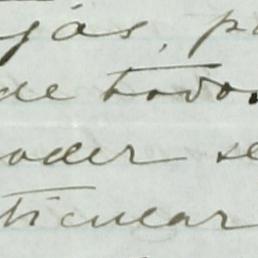 jas, p
de todos
oder se
ticular